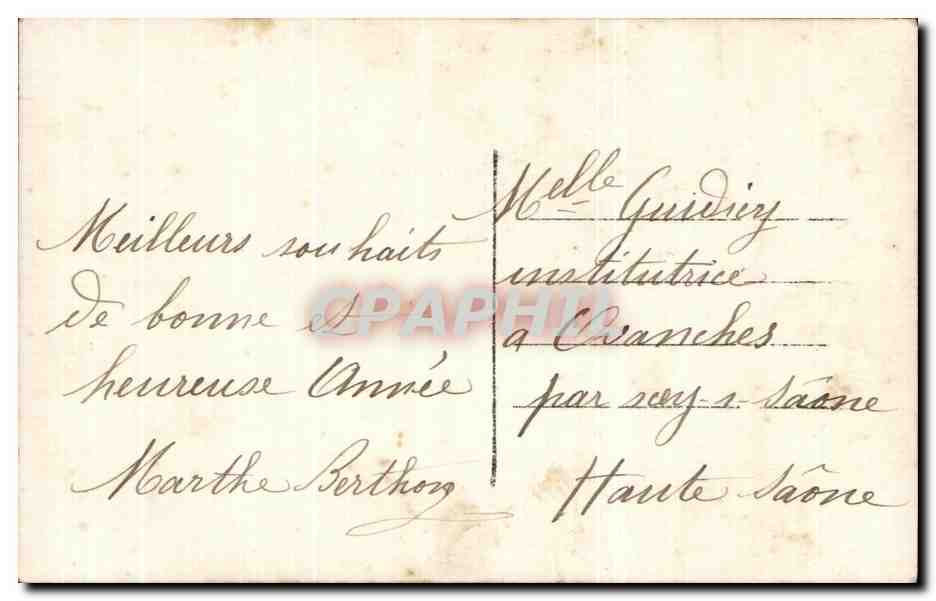 Meilleurs souhaits
de bonne et
heureuse Année
Marthe
Melle
institutrice
a Ovanches
par scey-s-Saône
Haute Saône
CPAPHIL